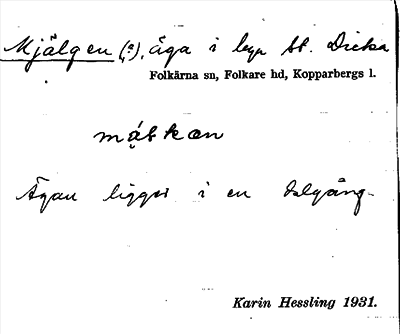 Mjälgen (?), äga i byn St. Dicka
Folkärna sn, Folkare hd, Kopparbergs l.
Ägan ligger i en dalgång.
Karin Hessling 1931.